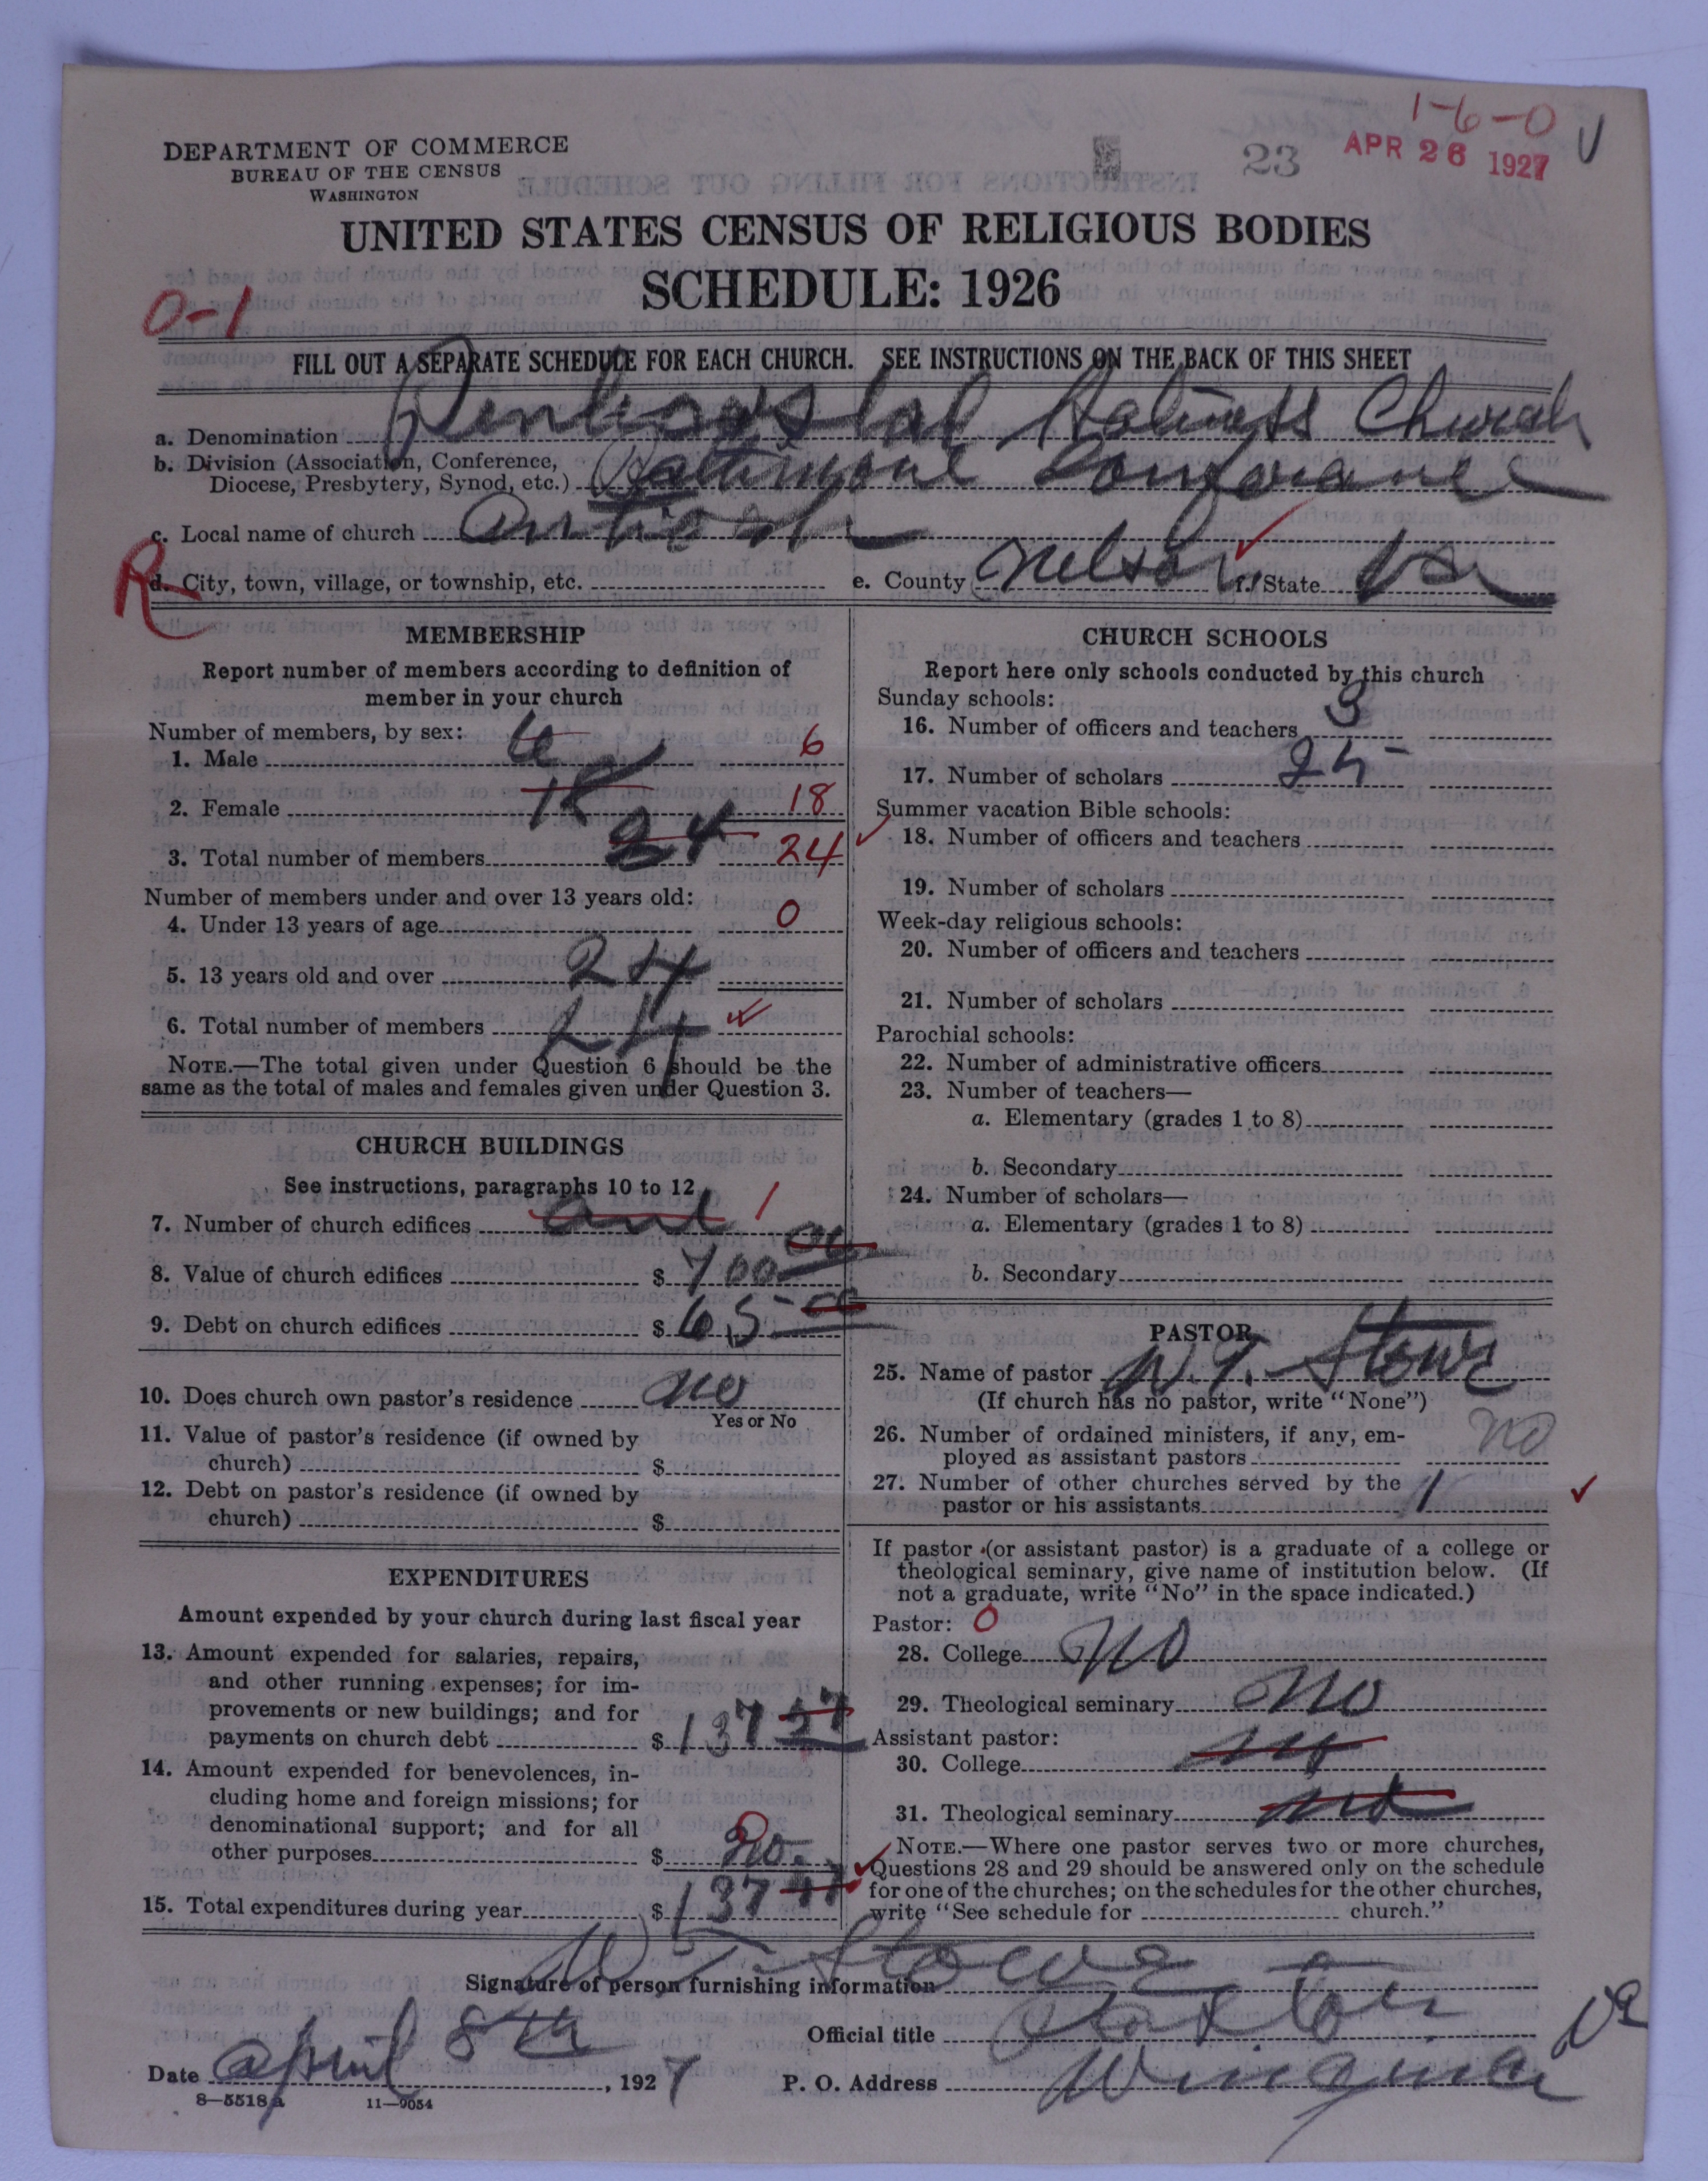 1-6-0
DEPARTMENT OF COMMERCE
BUREAU OF THE CENSUS
WASHINGTON
23
APR 26 1927
UNITED STATES CENSUS OF RELIGIOUS BODIES
SCHEDULE: 1926
0-1
FILL OUT A SEPARATE SCHEDULE FOR EACH CHURCH. SEE INSTRUCTIONS ON THE BACK OF THIS SHEET
a. Denomination Pentecostal Holiness Church
b. Division (Association, Conference,
Diocese, Presbytery, Synod, etc.) Baltimore Conforance
c. Local name of church Antioch
R
d. City, town, village, or township, etc. e. County Nelson f. State Va
MEMBERSHIP
Report number of members according to definition of
member in your church
Number of members, by sex:
1. Male 6 6
2. Female 18 18
3. Total number of members 24 24
Number of members under and over 13 years old:
4. Under 13 years of age 0
5. 13 years old and over 24
6. Total number of members 24
NOTE.—The total given under Question 6 should be the
same as the total of males and females given under Question 3.
CHURCH BUILDINGS
See instructions, paragraphs 10 to 12
7. Number of church edifices one 1
8. Value of church edifices $ 700 00
9. Debt on church edifices $ 65 00
10. Does church own pastor's residence no
Yes or No
11. Value of pastor's residence (if owned by
church) $
12. Debt on pastor's residence (if owned by
church) $
EXPENDITURES
Amount expended by your church during last fiscal year
13. Amount expended for salaries, repairs,
and other running expenses; for im-
provements or new buildings; and for
payments on church debt $ 137 27
14. Amount expended for benevolences, in-
cluding home and foreign missions; for
denominational support; and for all
other purposes $ no.
0
15. Total expenditures during year $ 137
CHURCH SCHOOLS
Report here only schools conducted by this church
Sunday schools:
16. Number of officers and teachers 3
17. Number of scholars 25
Summer vacation Bible schools:
18. Number of officers and teachers
19. Number of scholars
Week-day religious schools:
20. Number of officers and teachers
21. Number of scholars
Parochial schools:
22. Number of administrative officers
23. Number of teachers—
a. Elementary (grades 1 to 8)
b. Secondary
24. Number of scholars—
a. Elementary (grades 1 to 8)
b. Secondary
PASTOR
25. Name of pastor W. T. Stowe
(If church has no pastor, write "None")
26. Number of ordained ministers, if any, em-
ployed as assistant pastors no
27. Number of other churches served by the
pastor or his assistants 1
If pastor (or assistant pastor) is a graduate of a college or
theological seminary, give name of institution below. (If
not a graduate, write "No" in the space indicated.)
Pastor: 0
28. College no
29. Theological seminary no
Assistant pastor:
30. College no
31. Theological seminary no
NOTE.—Where one pastor serves two or more churches,
Questions 28 and 29 should be answered only on the schedule
for one of the churches; on the schedules for the other churches,
write "See schedule for church."
Signature of person furnishing information W T. Stowe
Official title Paster
Date april 8th, 1927 P. O. Address Wingina Va
8—5518a 11—9054